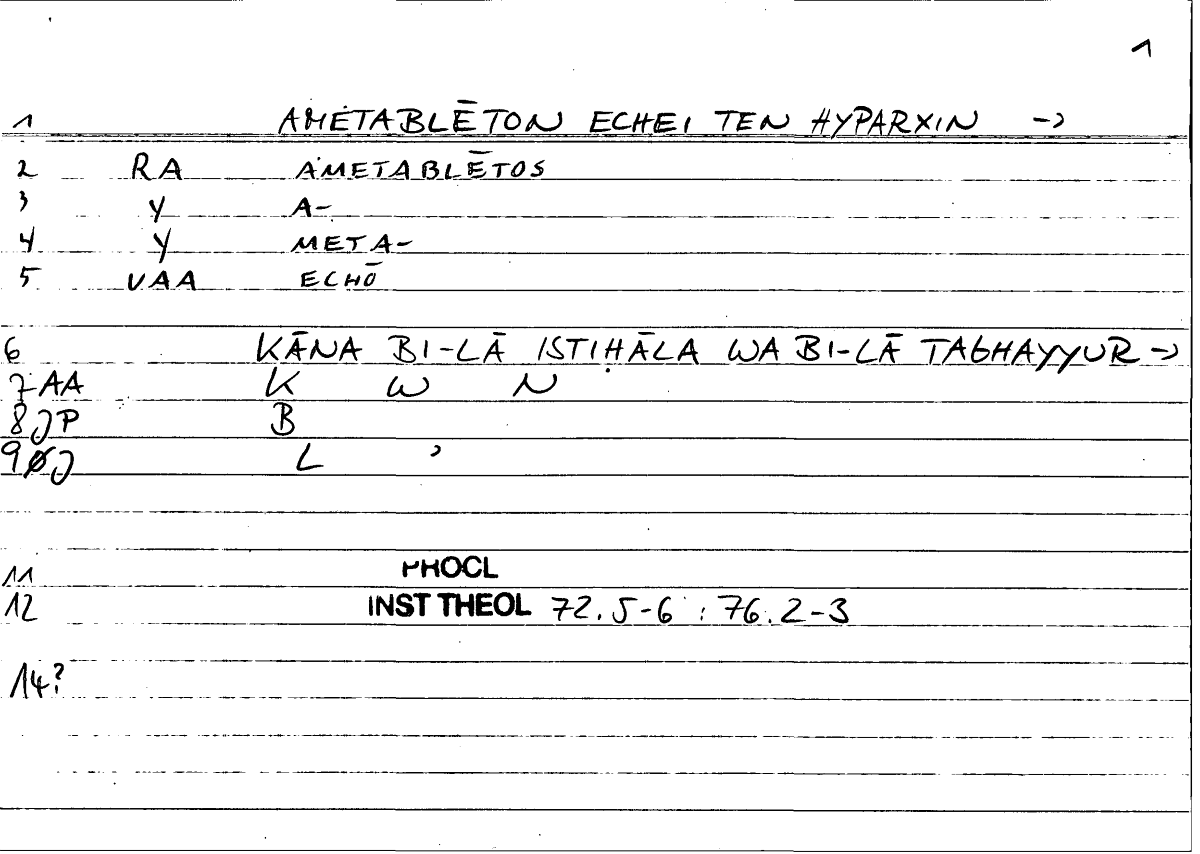 1
1 AMETABLĒTON ECHEI TEN HYPARXIN ->
2 RA AMETABLĒTOS
3 Y A-
4 Y META-
5 VAA ECHŌ
6 KĀNA BI-LĀ ISTIḤĀLA WA BI-LĀ TAGHAYYUR ->
7 AA K W N
8 JP B
9 ØJ L ʾ
11 PROCL
12 INST THEOL 72.5-6 : 76.2-3
14?